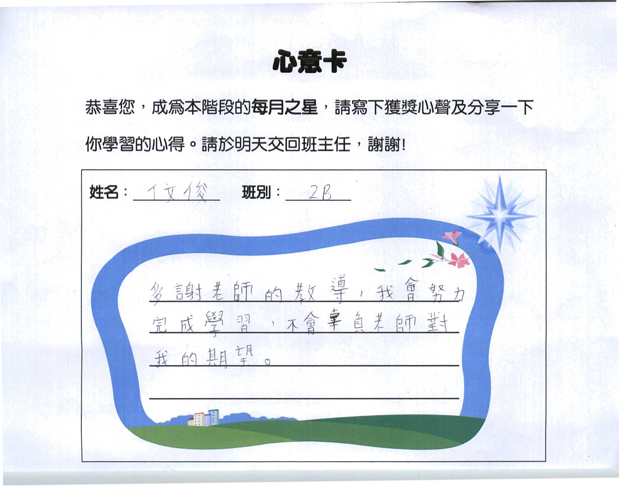 心意卡
恭喜您，成為本階段的每月之星，請寫下獲獎心聲及分享一下
你學習的心得。請於明天交回班主任，謝謝!
姓名： 文俊 班別： 2B
多謝老師的教導，我會努力
完成學習，不會辜負老師對
我的期望。